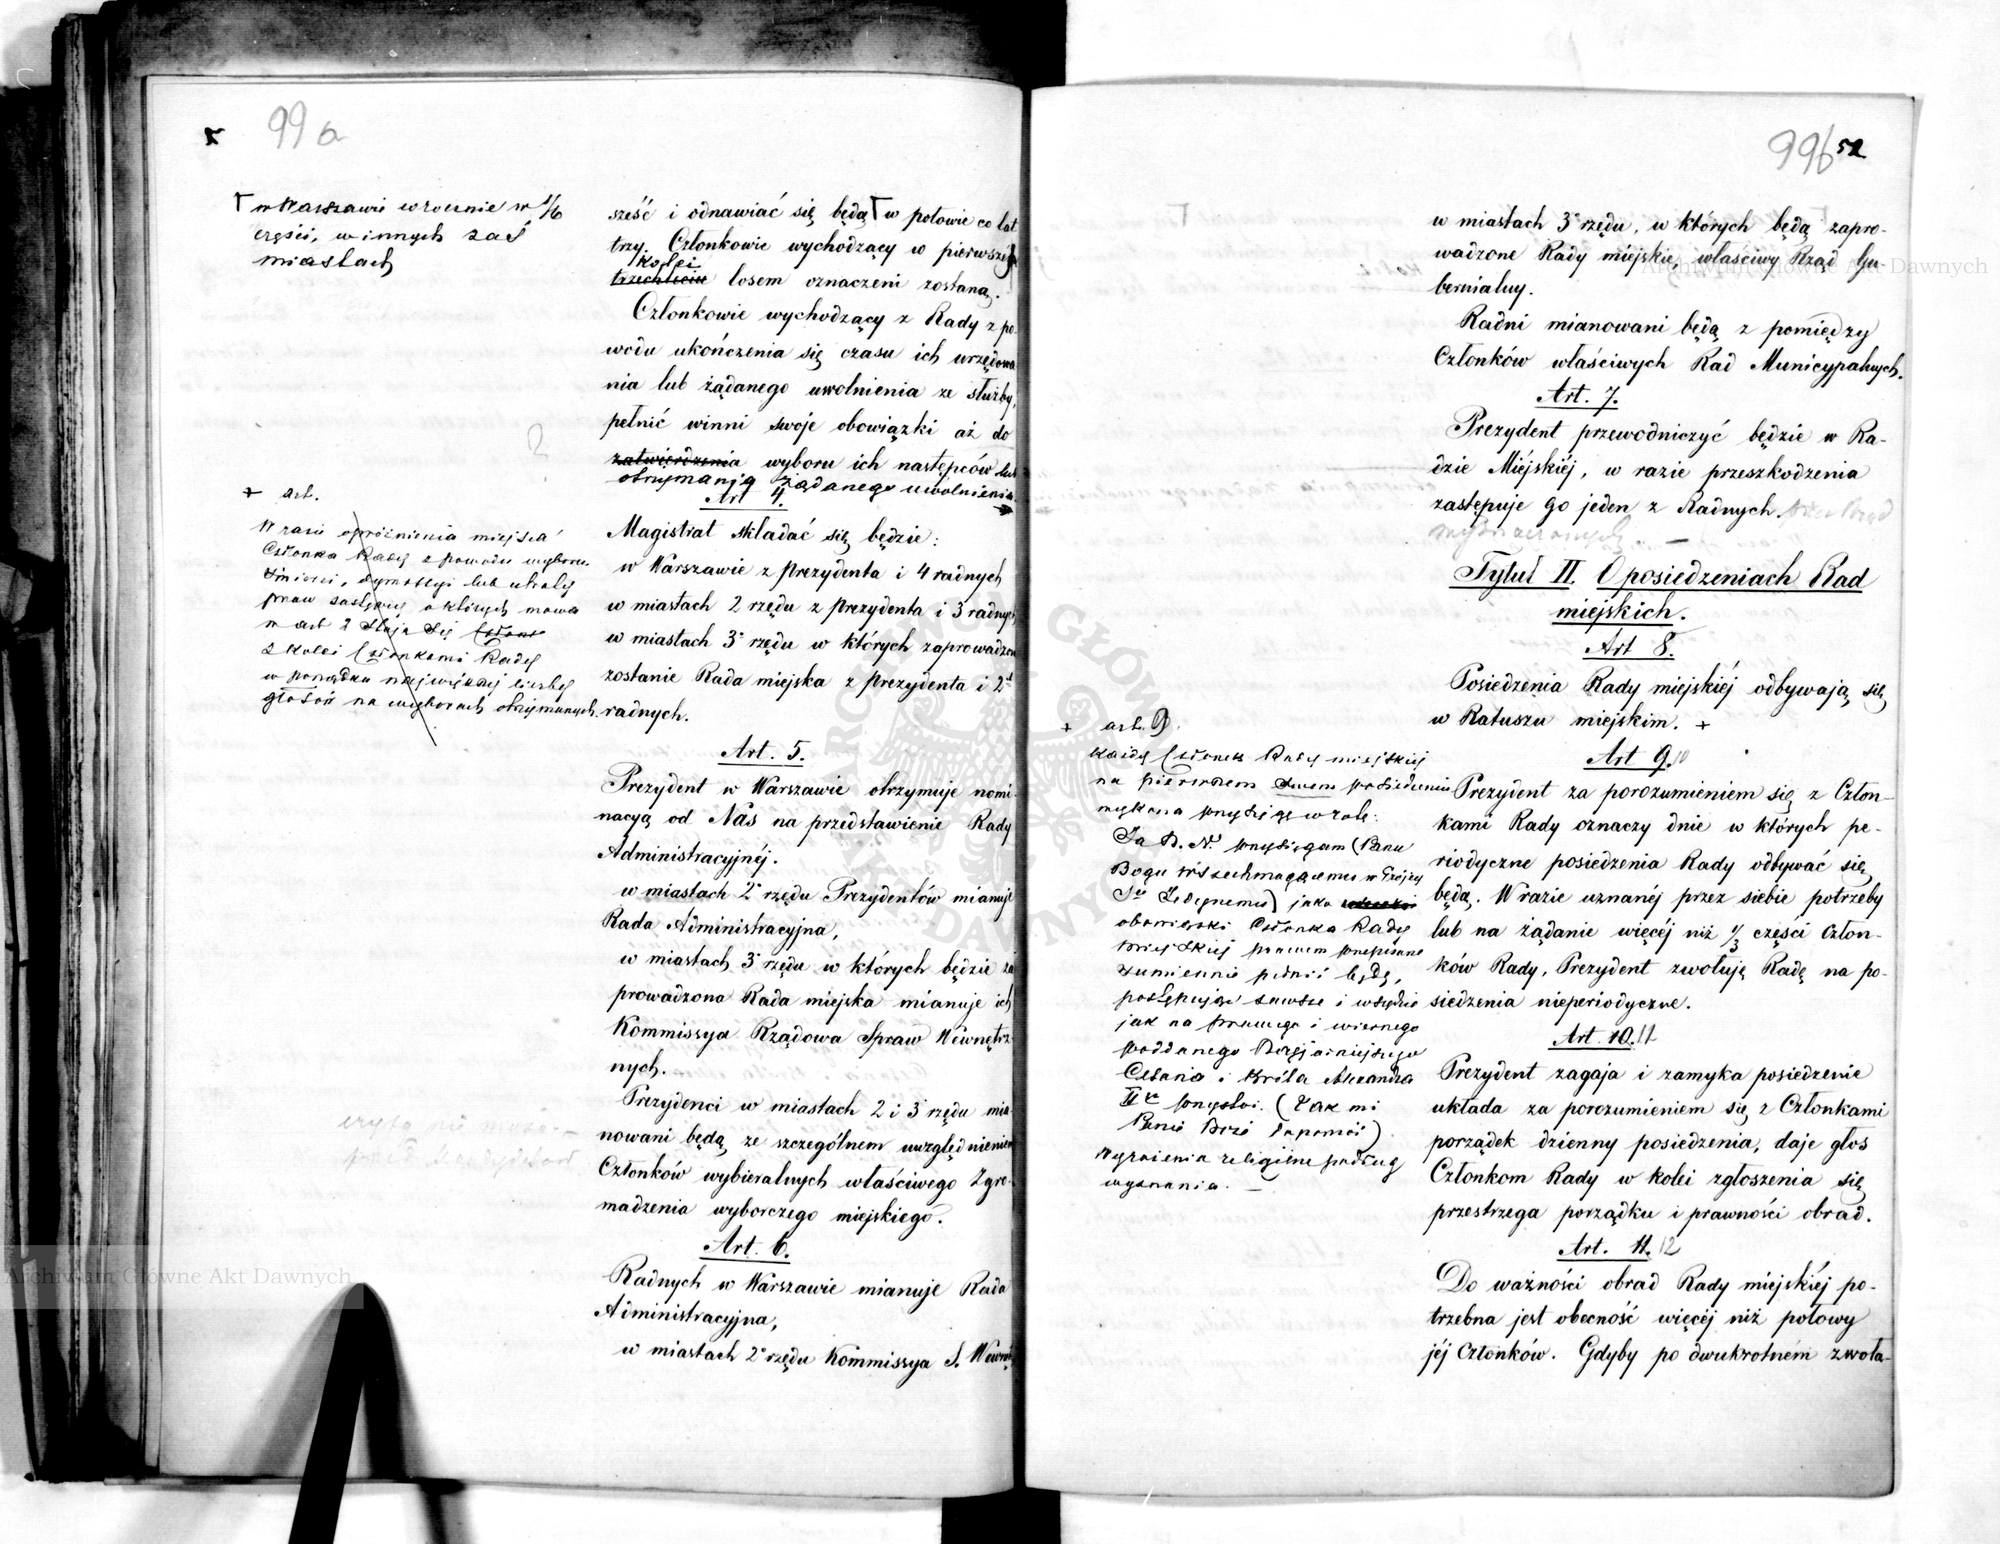 99 a
w Warszawie corocznie w 1/6
części, w innych zaś
miastach
sześć i odnawiać się będą w połowie co lat
trzy. Członkowie wychodzący w pierwszej
kolei
trzechleciu losem oznaczeni zostaną.
Członkowie wychodzący z Rady z po-
wodu ukończenia się czasu ich urzędowa
nia lub żądanego uwolnienia ze służby,
pełnić winni swoje obowiązki aż do
zatwierdzenia wyboru ich następców lub
otrzymania żądanego uwolnienia
+ art.
W razie opróżnienia miejsca
Członka Rady z powodu wyboru
śmierci, dymissyi lub utraty
praw zastępcy o których mowa
w art 2 stają się
z kolei Członkami Rady
w porządku największej liczby
głosów na wyborach otrzymanych.
Art 4.
Magistrat składać się będzie:
w Warszawie z prezydenta i 4 radnych
w miastach 2 rzędu z prezydenta i 3 radnych
w miastach 3º rzędu w których zaprowadzon
zostanie Rada miejska z prezydenta i 2
radnych.
Art. 5.
Prezydent w Warszawie otrzymuje nomi-
nacyą od Nas na przedstawienie Rady
Administracyjnéj.
w miastach 2º rzędu Prezydentów mianuje
Rada Administracyjna,
w miastach 3º rzędu w których będzie za
prowadzona Rada miejska mianuje ich
Kommissya Rządowa Spraw Wewnętrz-
nych.
Prezydenci w miastach 2 i 3 rzędu mia-
nowani będą ze szczególnem uwzględnieniem
Członków wybieralnych właściwego Zgro-
madzenia wyborczego miejskiego.
Art. 6.
Radnych w Warszawie mianuje Rada
Administracyjna,
w miastach 2º rzędu Kommissya S. Wewnę
99b 52
w miastach 3º rzędu, w których będą zapro-
wadzone Rady miejskie, właściwy Rząd Gu-
bernialny.
Radni mianowani będą z pomiędzy
Członków właściwych Rad Municypalnych.
Art. 7.
Prezydent przewodniczyć będzie w Ra-
dzie Miéjskiéj, w razie przeszkodzenia
zastępuje go jeden z Radnych.
Tytuł II. O posiedzeniach Rad
miejskich.
Art 8.
Posiedzenia Rady miejskiéj odbywają się
w Ratuszu miejskim. +
+ art. 9.
Każdy Członek Rady miejskiej
na pierwszem posiedzeniu
wykona przysięgę w rotę:
Ja N. N. przysięgam (Panu
Bogu Wszechmogącemu w Trójcy
Śej Jedynemu) jako
obowiązki Członka Rady
miejskiej prawem przepisane
sumiennie pełnić będę,
postępując zawsze i wszędzie
jak na prawego i wiernego
poddanego Najjaśniejszego
Cesarza i Króla Alexandra
IIgo przystoi. (Tak mi
Panie Boże dopomóż)
Wyrażenia religijne podług
wyznania. —
Art 9. 10
Prezydent za porozumieniem się z Człon-
kami Rady oznaczy dnie w których pe-
riodyczne posiedzenia Rady odbywać się
będą. W razie uznanéj przez siebie potrzeby
lub na żądanie więcéj niż 1/3 części Człon-
ków Rady, Prezydent zwołują Radę na po-
siedzenia nieperiodyczne.
Art. 10. 11
Prezydent zagaja i zamyka posiedzenie
układa za porozumieniem się z Członkami
porządek dzienny posiedzenia, daje głos
Członkom Rady w kolei zgłoszenia się
przestrzega porządku i prawności obrad.
Art. 11. 12
Do ważności obrad Rady miejskiéj po-
trzebna jest obecność więcéj niż połowy
jéj Członków. Gdyby po dwukrotném zwoła-
Archiwum Główne Akt Dawnych
Archiwum Główne Akt Dawnych
ARCHIWUM GŁÓWNE AKT DAWNYCH